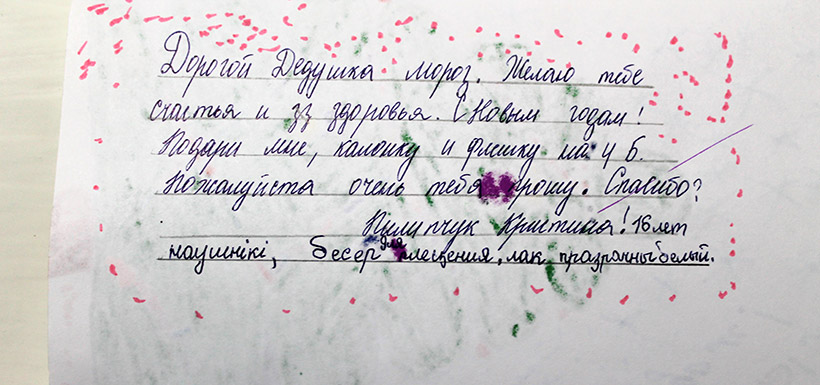 Дорогой Дедушка мороз. Желаю тебе
счастья и зз здоровья. С Новым годам!
Подари мне, калонку и флешку на 4 Б.
Пожалуйста очень тебя прошу. Спасибо?
Пилипчук Кристиая! 16 лет
наушнікі, бесер для плещения, лак празрачный белый.